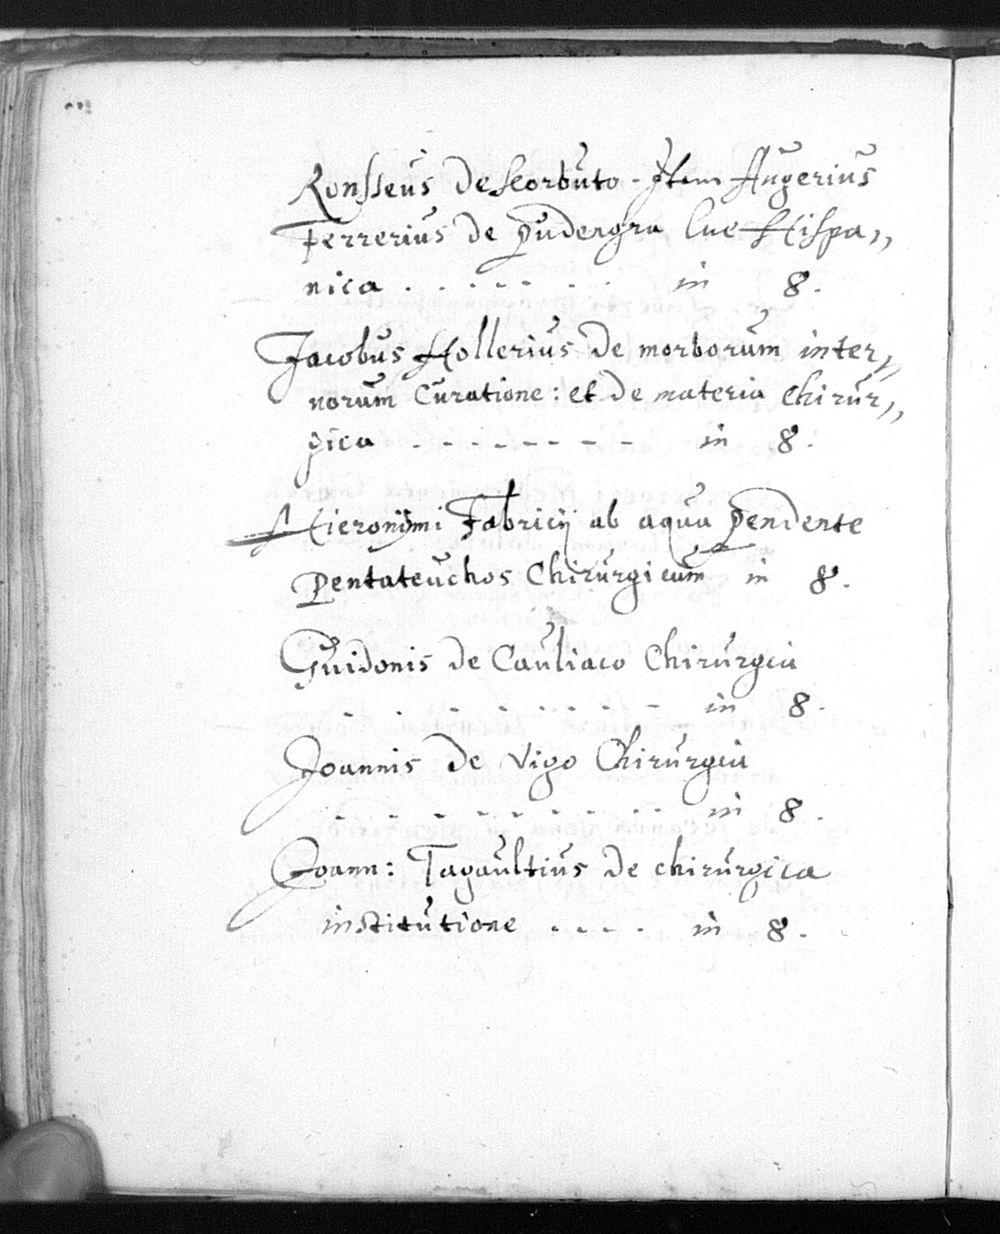 Ronsseus de scorbuto - Item Augerius
Ferrerius de pudengra lue Hispa„
nica . . . . . . . . in 8.
Jacobus Hollerius de morborum inter„
norum Curatione: et de materia Chirur„
gica - - - - - - - - in 8.
Hieronymi Fabricij ab aqua pendente
Pentateuchos Chirurgicum in 8.
Guidonis de Cauliaco Chirurgia
- - - - - - - - - in 8.
Joannis de Vigo Chirurgia
- - - - - - - - - - in 8.
Joann: Tagaultius de chirurgica
institutione - - - - - in 8.